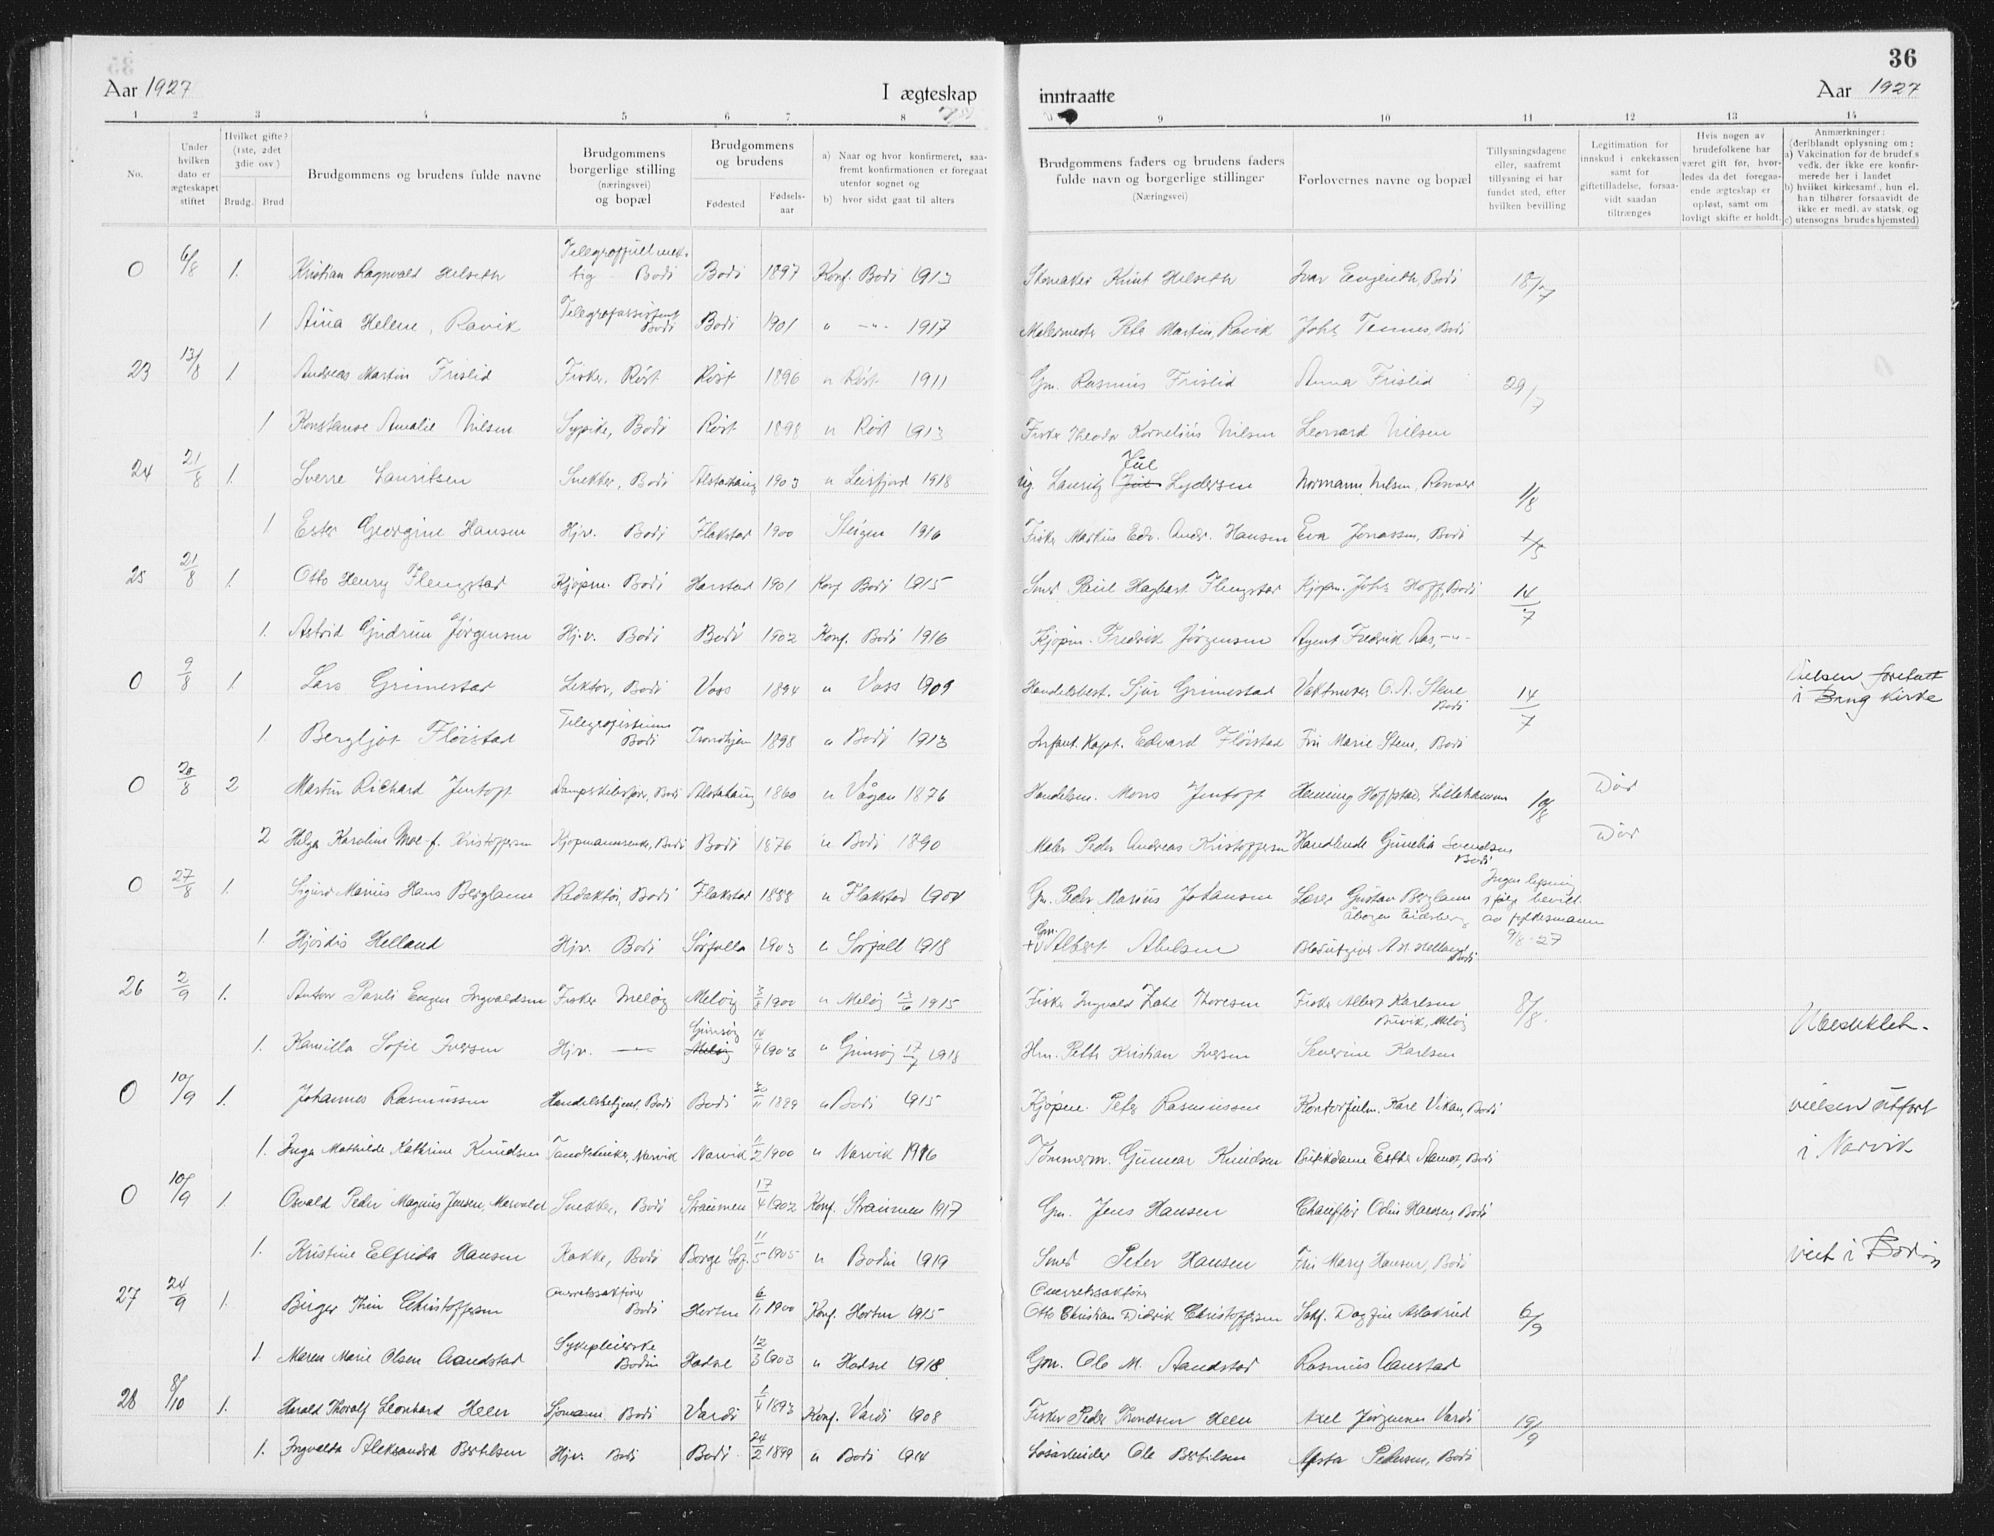 36
Aar 1927
I ægteskap
inntraatte
Aar 1927
1 2 3 4 5 6 7 8 9 10 11 12 13 14
No.
Under hvilken dato er ægteskapet stiftet
Hvilket gifte? (1ste, 2det 3die osv.)
Brudg. Brud
Brudgommens og brudens fulde navne
Brudgommens borgerlige stilling (næringsvei) og bopæl
Brudgommens og brudens
Fødested
Fødsels- aar
a) Naar og hvor konfirmeret, saafremt konfirmationen er foregaat utenfor sognet og
b) hvor sidst gaat til alters
Brudgommens faders og brudens faders fulde navn og borgerlige stillinger (Næringsvei)
Forlovernes navne og bopæl
Tillysningsdagene eller, saafremt tillysning ei har fundet sted, efter hvilken bevilling
Legitimation for innskud i enkekassen samt for giftetilladelse, forsaavidt saadan tiltrænges
Hvis nogen av brudefolkene har været gift før, hvorledes da det foregaaende ægteskap er opløst, samt om lovligt skifte er holdt.
Anmærkninger: (deriblandt oplysning om:
a) Vakcination for de brudef.s vedk. der ikke ere konfirmerede her i landet
b) hvilket kirkesamf., hun el. han tilhører forsaavidt de ikke er medl. av statsk. og
c) utensogns brudes hjemsted)
0 6/8 1. Kristian Ragnvald Helseth Telegraffullmektig Bodø Bodø 1897 Konf. Bodø 1913 Skomaker Knut Helseth Ivar Engseth, Bodø 18/7
1 Aina Helene, Ravik Telegrafassistent Bodø Bodø 1901 " -"- 1917 Malermester Peter Martin, Ravik Johs Tennes, Bodø
23 13/8 1. Andreas Martin Frislid Fisker, Røst Røst 1896 " Røst 1911 Gm. Rasmus Frislid Anna Frislid 29/7
1 Konstanse Amalie Nilsen Sypike, Bodø Røst 1898 " Røst 1913 Fisker Theodor Kornelius Nilsen Leonard Nilsen
24 21/8 1. Sverre Lauritsen Snekker, Bodø Alstahaug 1903 " Leirfjord 1918 Lauritz Jul Lydersen Normann Nilsen, 1/8
1 Ester Georgine Hansen Hjv. Bodø Flakstad 1900 Steigen 1916 Fisker Markus Edv. Andr. Hansen Eva Jonassen, Bodø
25 21/8 1. Otto Henry Flengstad Kjøpm. Bodø Harstad 1901 Konf Bodø 1915 Smed Paul Hagbart Flengstad Kjøpm. Johs Hoff, Bodø 14/7
1. Astrid Gudrun Jørgensen Hj.v. Bodø Bodø 1902 Konf. Bodø 1916 Kjøpm. Fredrik Jørgensen Agent Fredrik Aas, -"-
0 9/8 1. Lars Grimestad Lektor, Bodø Voss 1894 " Voss 1909 Handelsbest. Sjur Grimestad Vaktmester O. A. Stene Bodø 14/7 Vielsen foretatt i Kirke
1 Bergljot Fløistad Telegrafistinne Bodø Trondhjem 1898 " Bodø 1913 Infant. Kapt. Edvard Fløistad Fru Marie Stene, Bodø
0 20/8 2 Martin Richard Jentoft Dampskibsfører, Bodø Alstahaug 1860 " Vågan 1876 Handelsm. Mons Jentoft Henning Hoffstad, Lillehammer 10/8 Død
2 Helga Karoline Moe f. Kristoffersen Kjøpmannsenke, Bodø Bodø 1876 " Bodø 1890 Maler Peder Andreas Kristoffersen Handlende Gunelia Svendsen Bodø Død
0 27/8 1. Sigurd Marius Hans Berglann Redaktør, Bodø Flakstad 1888 " Flakstad 1904 Gm. Peder Marius Johansen Lærer Gustav Berglann Åbogen Eidsberg Ingen lysning ifølge bevill. av fylkesmann 9/8-27
1. Hjørdis Helland Hjv. Bodø Sørfolla 1903 " Sørfold 1918 Gm. Albert Abelsen Bladutgiver A. H. Helland Bodø
26 2/9 1. Anton Pauli Eugen Ingvaldsen Fisker Meløy Meløy 3/8 1900 " Meløy 13/6 1915 Fisker Ingvald Zahl Thoresen Fisker Albert Karlsen Buvik, Meløy 8/8.
1. Kamilla Sofie Iversen Hjv. -"- Gimsøy Meløy 14/4 1903 " Gimsøy 17/7 1918 Hm. Peth Kristian Iversen Severine Karlsen
0 10/9 1. Johannes Rasmussen Handelsbetjent, Bodø Bodø 1899 " Bodø 1915 Kjøpm. Peter Rasmussen Kontorfullm. Karl Vikan, Bodø vielsen utført
1. Inga Mathilde Kathrine Knudsen Tandtekniker, Narvik Narvik 1/2 1900 " Narvik 1916 Tømmerm. Gunnar Knudsen Butikdame Esther Aamot, Bodø i Narvik
0 10/9 1. Osvald Peder Magnus Jensen, Mørvold Snekker, Bodø Straumen 17/4 1902 Konf. Straumen 1917 Gm. Jens Hansen Chauffør Odin Hansen, Bodø
1. Kristine Elfrida Hansen Kokke, Bodø Borge Lof. 11/5 1905 " Bodin 1919 Smed Peter Hansen Fru Mary Hansen, Bodø viet i Bodin
27 24/9 1. Birger Thin Christoffersen Overretssakfører Bodø Horten 6/11 1900 Konf. Horten 1915 Overretssakfører Otto Christian Didrik Christoffersen Sakf. Dagfin Aslaksrud 6/9
1. Maren Marie Olsen Aandstad Sykepleierske Bodin Hadsel 12/3 1903 " Hadsel 1918. Gm. Ole M. Aandstad Rasmus Aanstad
28 8/10 1. Harald Thoralf Leonhard Heen Sjømann Bodø Vardø 1/4 1893 Konf. Vardø 1908 Fisker Peder Throndsen Heen Axel Jørgensen Vardø 19/9
1. Ingvalda Aleksandra Bertilsen Hjv. Bodø Bodø 24/2 1899 " Bodø 1914 Løsarbeider Ole Bertilsen Asta Pedersen, Bodø